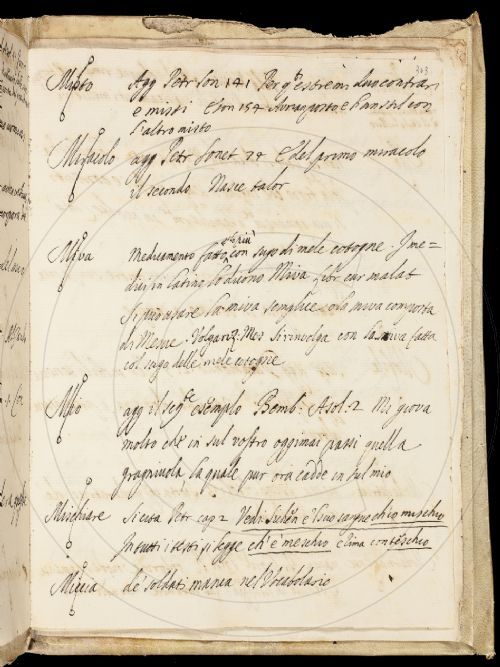 343
Misto agg Petr son 141 Per q.i estremi duo contrari
e misti E son 154 Avran posto e l'un stil con
l'altro misto
Miracolo agg Petr sonet 74 E del primo miracolo
il secondo Nasce talor
Miva Medicamento fatto più con sugo di mele cotogne. I me=
dici in latino lo dicono Miva libr cur malat
Si può usare la miva semplice o la miva composta
di Mesue. Volgariz Mes Si rinvolga con la miva fatta
col sugo delle mele cotogne
Mio agg il seg.te esemplo Bemb. Asol: 2 Mi giova
molto che in sul vostro oggimai passi quella
gragniuola la quale pur ora cadde in sul mio
Mischiare Si cita Petr cap 2 Vedi e'l suo sangue ch'io mischio
In tutti i testi si legge ch'è meschio e rima con teschio
Miccia de soldati manca nel Vocabolario